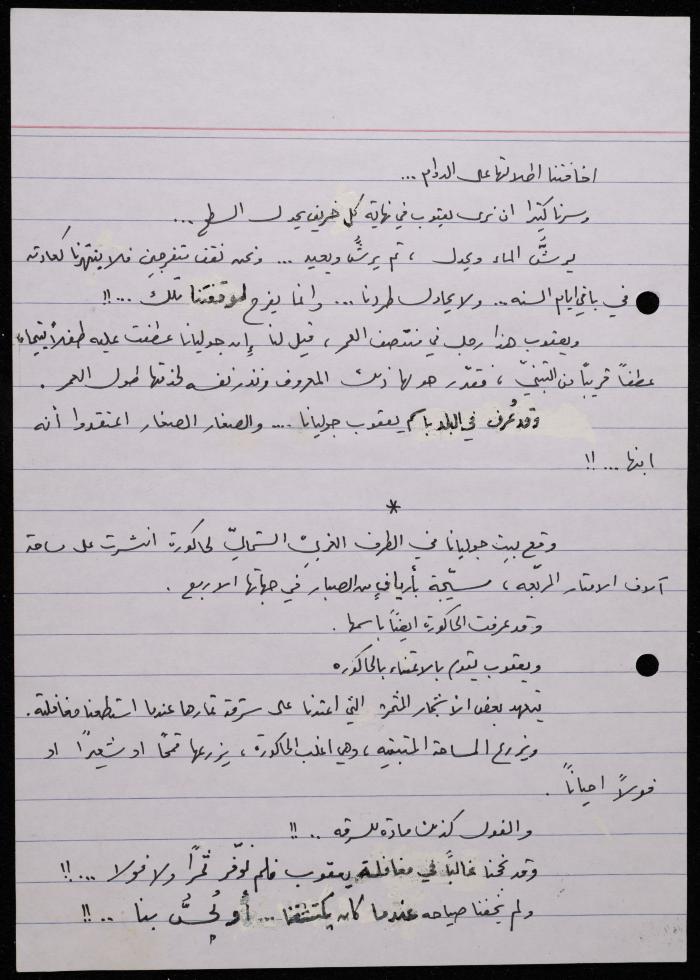 اخافتنا اطلالتها على الدوام ...
وسرنا كثيرا ان نرى يعقوب في نهاية كل خريف يحدل السطح ...
يرشُّ الماء ويحدل ، ثم يرشُّ ويعيد ... ونحن نقف متفرجين فلا ينتهرنا كعادته
في باقي ايام السنه ... ولا يحاول طردنا ... وانما يفرح لموقفنا تلك ... !!
ويعقوب هذا رجل في منتصف العمر ، قيل لنا إن جوليانا عطفت عليه طفلاً يتيماً
عطفاً قريباً من التبنيّ ، فقدّر هو لها ذلك المعروف ونذر نفسه لخدمتها طول العمر .
وقد عُرف في البلد باسم يعقوب جوليانا .... والصغار الصغار اعتقدوا أنه
ابنها ... !!
*
وقع بيت جوليانا في الطرف الغربيّ الشماليّ لحاكورة انتشرت على مساحة
آلاف الامتار المربّعه ، مسيّجة بأرياف من الصبار في جهاتها الاربع .
وقد عرفت الحاكورة ايضاً باسمها .
ويعقوب يقوم بالاعتناء بالحاكوره
يتعهد بعض الاشجار المثمرة التي اعتدنا على سرقة ثمارها عندما استطعنا مغافلته .
ويزرع المساحة المتبقيه ، وهي اغلب الحاكورة ، يزرعها قمحًا او شعيرًا او
فولاً احياناً .
والفول كذلك مادة للسرقه .. !!
وقد نجحنا غالباً في مغافلة يعقوب فلم نوفّر ثمرًا ولا فولا ... !!
ولم يخفنا صياحه عندما كان يكتشفنا ... أو يُحِسُّ بنا .. !!